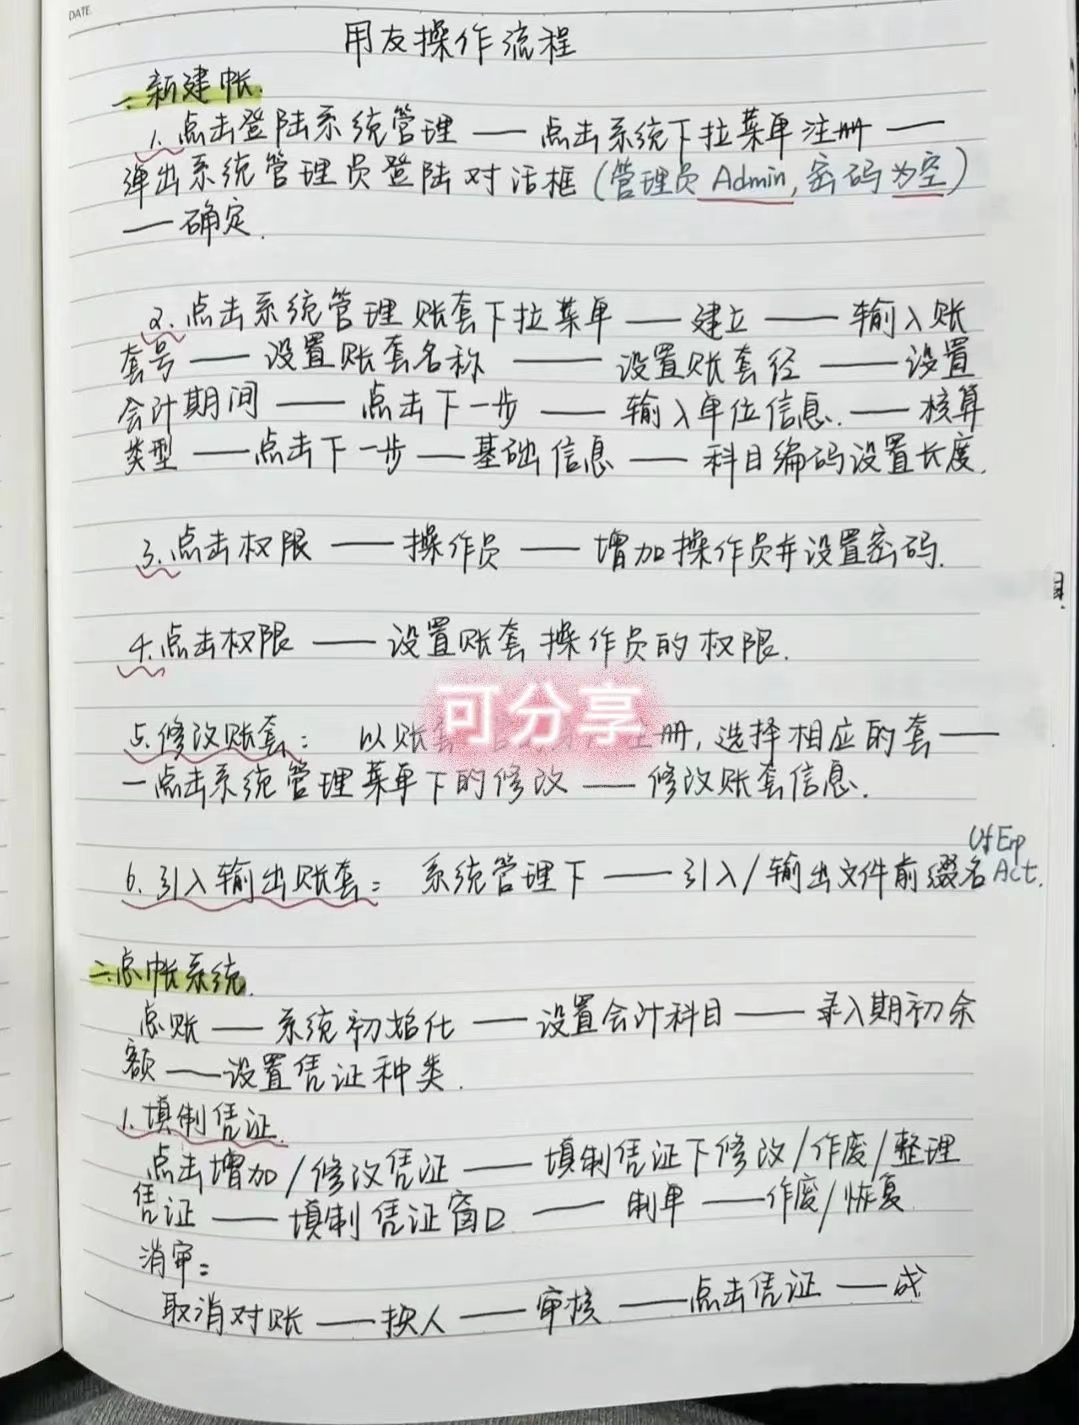 DATE
用友操作流程
一.新建帐.
1.点击登陆系统管理 —— 点击系统下拉菜单注册 ——
弹出系统管理员登陆对话框(管理员 Admin,密码为空)
——确定.
2.点击系统管理 账套下拉菜单 —— 建立 —— 输入账
套号 —— 设置账套名称 —— 设置账套径 —— 设置
会计期间 —— 点击下一步 —— 输入单位信息. —— 核算
类型 ——点击下一步——基础信息 —— 科目编码设置长度.
3.点击权限 —— 操作员 —— 增加操作员并设置密码.
4.点击权限 —— 设置账套操作员的权限.
可分享
5.修改账套: 以账套 注册,选择相应的套——
一点击系统管理菜单下的修改 —— 修改账套信息.
UfErp
6.引入输出账套: 系统管理下 —— 引入/输出文件前缀名Act.
二.总帐系统.
总账 —— 系统初始化 —— 设置会计科目 —— 录入期初余
额 ——设置凭证种类.
1.填制凭证.
点击增加/修改凭证 —— 填制凭证下修改/作废/整理
凭证 —— 填制凭证窗口 —— 制单 ——作废/恢复
消审:
取消对账 ——换人 —— 审核 ——点击凭证 ——成